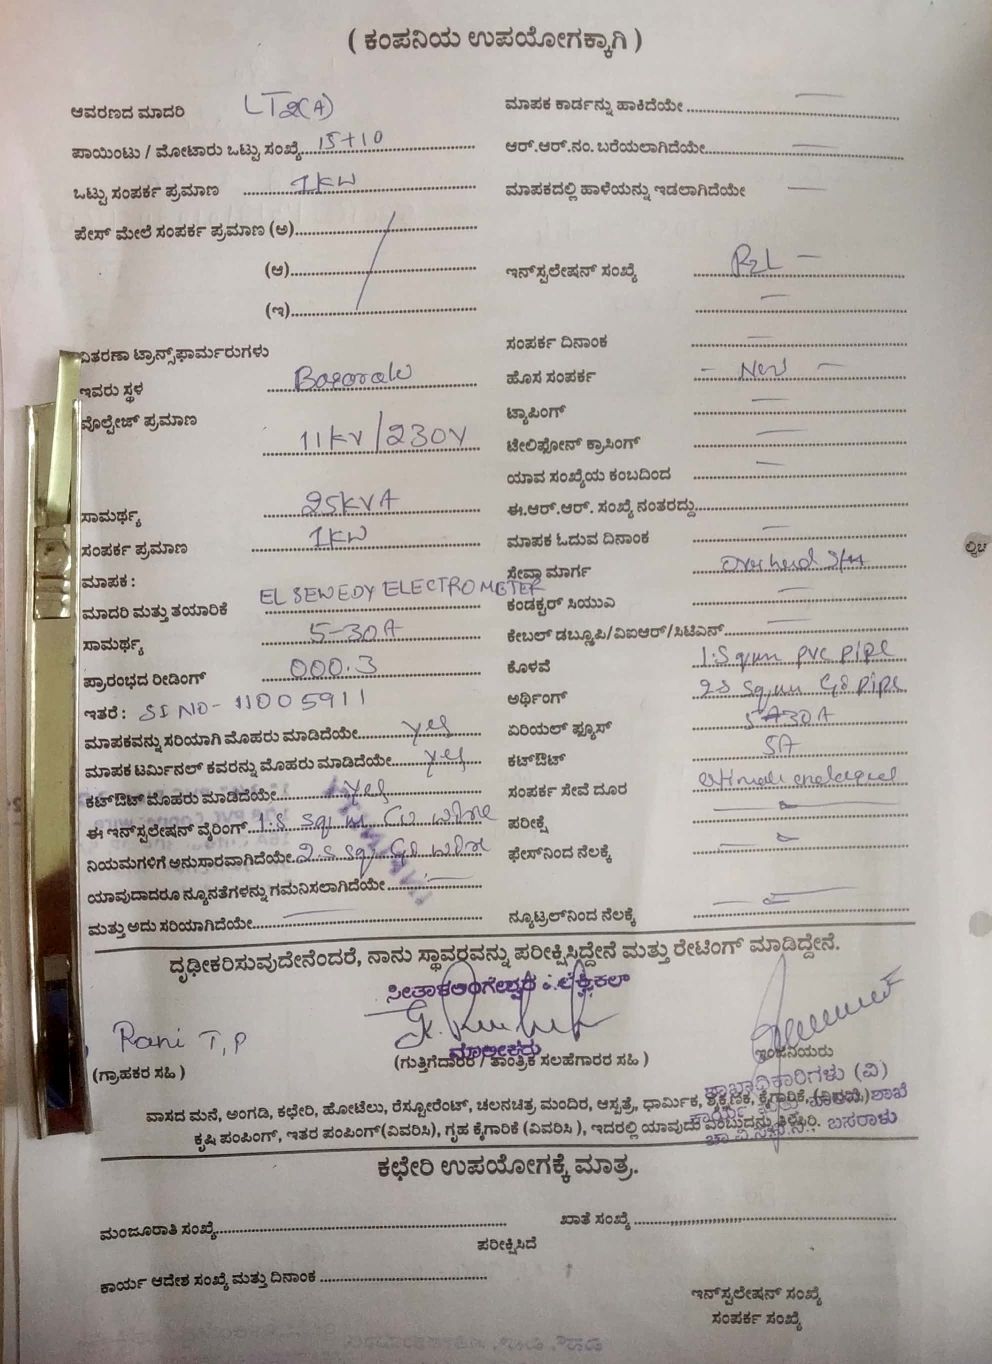 ( ಕಂಪನಿಯ ಉಪಯೋಗಕ್ಕಾಗಿ )
ಆವರಣದ ಮಾದರಿ LT2(A)
ಪಾಯಿಂಟು / ಮೋಟಾರು ಒಟ್ಟು ಸಂಖ್ಯೆ 15+10
ಒಟ್ಟು ಸಂಪರ್ಕ ಪ್ರಮಾಣ 1KW
ಪೇಸ್ ಮೇಲೆ ಸಂಪರ್ಕ ಪ್ರಮಾಣ (ಅ)
(ಆ)
(ಇ)
ವಿತರಣಾ ಟ್ರಾನ್ಸ್‌ಫಾರ್ಮರುಗಳು
ಇವರು ಸ್ಥಳ
ವೊಲ್ಟೇಜ್ ಪ್ರಮಾಣ
11KV/230V
ಸಾಮರ್ಥ್ಯ 25KVA
ಸಂಪರ್ಕ ಪ್ರಮಾಣ 1KW
ಮಾಪಕ :
ಮಾದರಿ ಮತ್ತು ತಯಾರಿಕೆ EL SEWEDY ELECTROMETER
ಸಾಮರ್ಥ್ಯ 5-30A
ಪ್ರಾರಂಭದ ರೀಡಿಂಗ್ 000.3
ಇತರೆ : SI NO- 11005911
ಮಾಪಕವನ್ನು ಸರಿಯಾಗಿ ಮೊಹರು ಮಾಡಿದೆಯೇ yes
ಮಾಪಕ ಟರ್ಮಿನಲ್ ಕವರನ್ನು ಮೊಹರು ಮಾಡಿದೆಯೇ yes
ಕಟ್‌ಔಟ್ ಮೊಹರು ಮಾಡಿದೆಯೇ yes
ಈ ಇನ್‌ಸ್ಟಲೇಷನ್ ವೈರಿಂಗ್ 1.5 Sq m Cu wire
ನಿಯಮಗಳಿಗೆ ಅನುಸಾರವಾಗಿದೆಯೇ 2.5 Sq GI wire
ಯಾವುದಾದರೂ ನ್ಯೂನತೆಗಳನ್ನು ಗಮನಿಸಲಾಗಿದೆಯೇ
ಮತ್ತು ಅದು ಸರಿಯಾಗಿದೆಯೇ
ಮಾಪಕ ಕಾರ್ಡನ್ನು ಹಾಕಿದೆಯೇ
ಆರ್.ಆರ್.ನಂ. ಬರೆಯಲಾಗಿದೆಯೇ
ಮಾಪಕದಲ್ಲಿ ಹಾಳೆಯನ್ನು ಇಡಲಾಗಿದೆಯೇ
ಇನ್‌ಸ್ಟಲೇಷನ್ ಸಂಖ್ಯೆ
ಸಂಪರ್ಕ ದಿನಾಂಕ
ಹೊಸ ಸಂಪರ್ಕ - New -
ಟ್ಯಾಪಿಂಗ್
ಟೇಲಿಫೋನ್ ಕ್ರಾಸಿಂಗ್
ಯಾವ ಸಂಖ್ಯೆಯ ಕಂಬದಿಂದ
ಈ.ಆರ್.ಆರ್. ಸಂಖ್ಯೆ ನಂತರದ್ದು
ಮಾಪಕ ಓದುವ ದಿನಾಂಕ
ಸೇವಾ ಮಾರ್ಗ Over head
ಕಂಡಕ್ಟರ್ ಸಿಯುಎ
ಕೇಬಲ್ ಡಬ್ಲೂಪಿ/ವಿಐಆರ್/ಸಿಟಿಎನ್
ಕೊಳವೆ 1.5 qmm PVC PIPE
ಅರ್ಥಿಂಗ್ 25 Sqmm GI PIPE
ಏರಿಯಲ್ ಫ್ಯೂಸ್ 30A
ಕಟ್‌ಔಟ್ 5A
ಸಂಪರ್ಕ ಸೇವೆ ದೂರ
ಪರೀಕ್ಷೆ
ಫೇಸ್‌ನಿಂದ ನೆಲಕ್ಕೆ
ನ್ಯೂಟ್ರಲ್‌ನಿಂದ ನೆಲಕ್ಕೆ
ದೃಢೀಕರಿಸುವುದೇನೆಂದರೆ, ನಾನು ಸ್ಥಾವರವನ್ನು ಪರೀಕ್ಷಿಸಿದ್ದೇನೆ ಮತ್ತು ರೇಟಿಂಗ್ ಮಾಡಿದ್ದೇನೆ.
Rani T,P
ಮಾಲೀಕರು
(ಗ್ರಾಹಕರ ಸಹಿ )
(ಗುತ್ತಿಗೆದಾರರ / ತಾಂತ್ರಿಕ ಸಲಹೆಗಾರರ ಸಹಿ )
ಇಂಜಿನಿಯರು
ಶಾಖಾಧಿಕಾರಿಗಳು (ವಿ)
ವಾಸದ ಮನೆ, ಅಂಗಡಿ, ಕಛೇರಿ, ಹೋಟೆಲು, ರೆಸ್ಟೋರೆಂಟ್, ಚಲನಚಿತ್ರ ಮಂದಿರ, ಆಸ್ಪತ್ರೆ, ಧಾರ್ಮಿಕ, ಶೈಕ್ಷಣಿಕ, ಕೈಗಾರಿಕೆ, (ವಿವರಿಸಿ) ಶಾಖೆ
ಕೃಷಿ ಪಂಪಿಂಗ್, ಇತರ ಪಂಪಿಂಗ್(ವಿವರಿಸಿ), ಗೃಹ ಕೈಗಾರಿಕೆ (ವಿವರಿಸಿ ), ಇದರಲ್ಲಿ ಯಾವುದು ಎಂಬುದನ್ನು ತಿಳಿಸಿರಿ. ಬಸರಾಳು
ಕಛೇರಿ ಉಪಯೋಗಕ್ಕೆ ಮಾತ್ರ.
ಮಂಜೂರಾತಿ ಸಂಖ್ಯೆ
ಖಾತೆ ಸಂಖ್ಯೆ
ಪರೀಕ್ಷಿಸಿದೆ
ಕಾರ್ಯ ಆದೇಶ ಸಂಖ್ಯೆ ಮತ್ತು ದಿನಾಂಕ
ಇನ್‌ಸ್ಟಲೇಷನ್ ಸಂಖ್ಯೆ
ಸಂಪರ್ಕ ಸಂಖ್ಯೆ